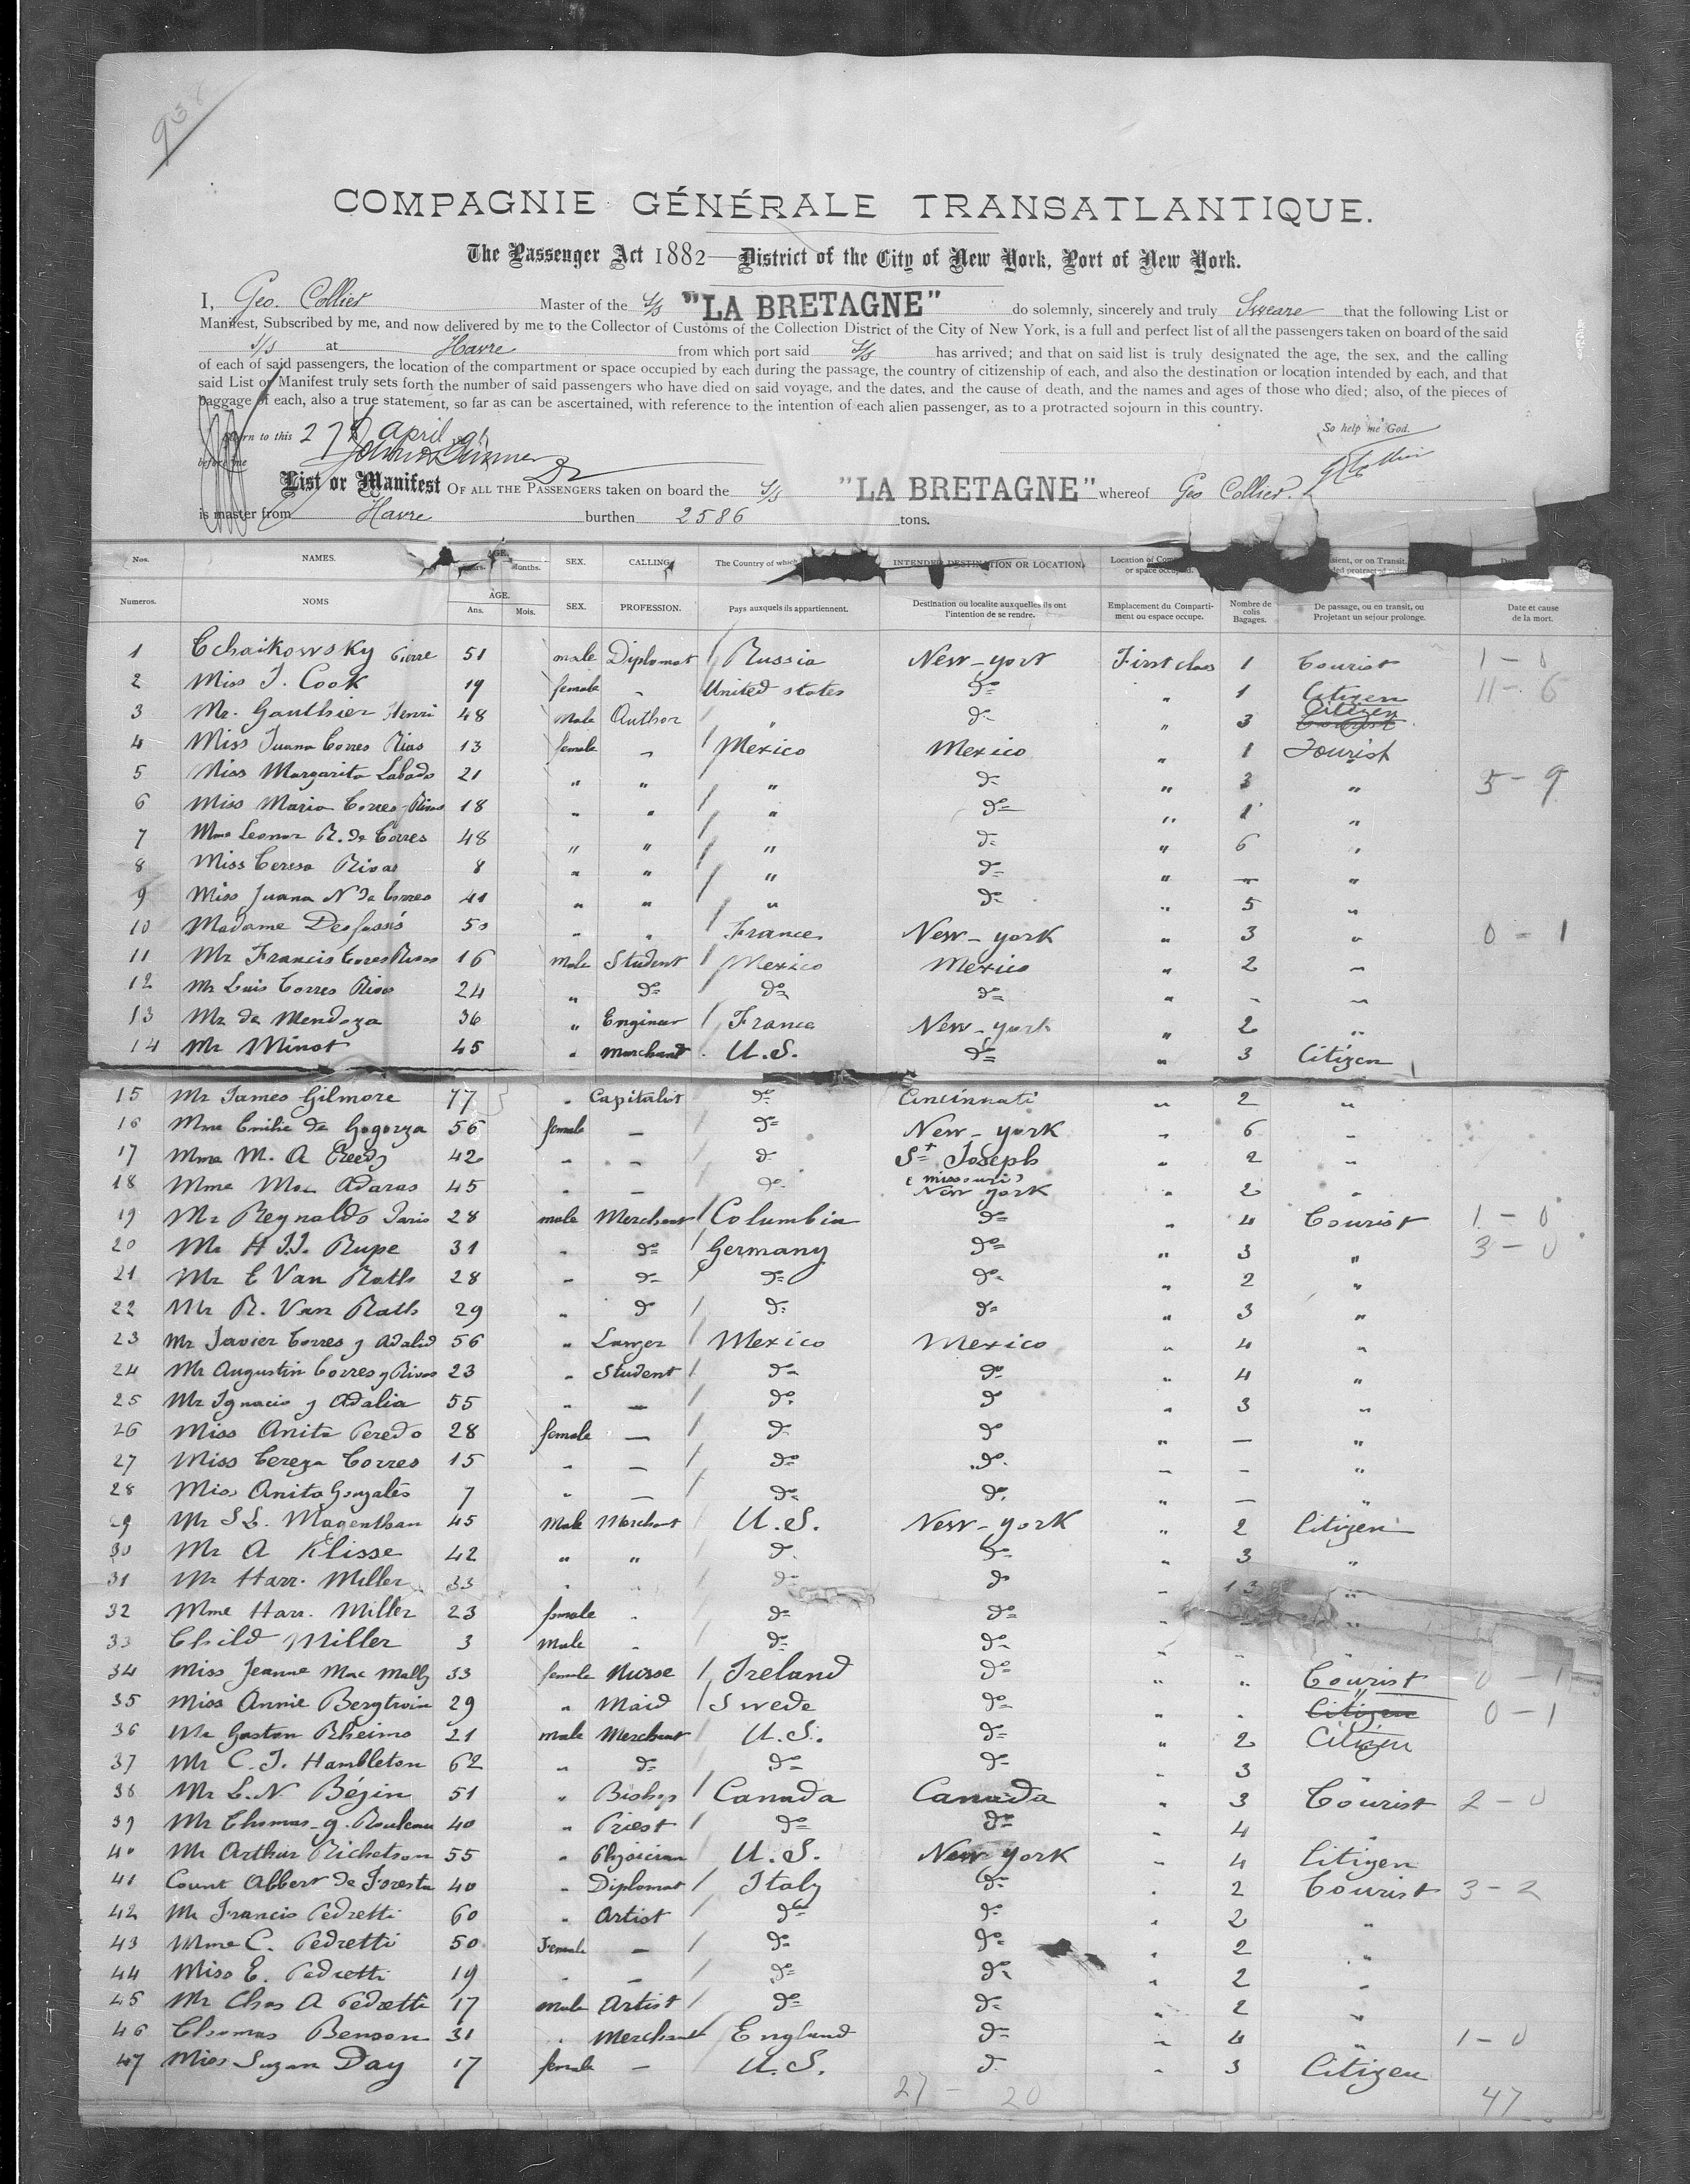 COMPAGNIE GÉNÉRALE TRANSATLANTIQUE.
The Passenger Act 1882—District of the City of New York, Port of New York.
I, Geo. Collier Master of the S/S "LA BRETAGNE" do solemnly, sincerely and truly Sweare that the following List or
Manifest, Subscribed by me, and now delivered by me to the Collector of Customs of the Collection District of the City of New York, is a full and perfect list of all the passengers taken on board of the said
S/S at Havre from which port said S/S has arrived; and that on said list is truly designated the age, the sex, and the calling
of each of said passengers, the location of the compartment or space occupied by each during the passage, the country of citizenship of each, and also the destination or location intended by each, and that
said List or Manifest truly sets forth the number of said passengers who have died on said voyage, and the dates, and the cause of death, and the names and ages of those who died; also, of the pieces of
baggage of each, also a true statement, so far as can be ascertained, with reference to the intention of each alien passenger, as to a protracted sojourn in this country.
So help me God.
to this 27 April
before me
List or Manifest OF ALL THE PASSENGERS taken on board the S/S "LA BRETAGNE" whereof Geo Collier.
is master from Havre burthen 2586 tons.
Nos. NAMES. AGE. SEX. CALLING The Country of which INTENDED DESTINATION OR LOCATION Location of or space or on Transit,
Months.
Numeros. NOMS AGE. SEX. PROFESSION. Pays auxquels ils appartiennent. Destination ou localite auxquelles ils ont l'intention de se rendre. Emplacement du Comparti-ment ou espace occupe. Nombre de colis Bagages. De passage, ou en transit, ou Projetant un sejour prolonge. Date et cause de la mort.
Ans. Mois.
1 Tchaikowsky Pierre 51 male Diplomat / Russia New-york First class 1 Tourist 1 - 0
2 Miss J. Cook 19 female „ United states do „ 1 Citizen 11 - 6
3 Mr. Gauthier Henri 48 Male Author „ do „ 3 Citizen
4 Miss Juana Torres Rias 13 female „ / Mexico Mexico „ 1 Tourist
5 Miss Margarita Labado 21 „ „ „ do „ 3 „ 5 - 9
6 Miss Maria Torres-Rivas 18 „ „ / „ do „ 1 „
7 Mme Leonor R. de Torres 48 „ „ / „ do „ 6 „
8 Miss Teresa Rivas 8 „ „ / „ do „ — „
9 Miss Juana N de Torres 41 „ „ / „ do „ 5 „
10 Madame Desfossés 50 „ „ / France New-york „ 3 „ 0 - 1
11 Mr Francis Torres Rivas 16 male Student / Mexico Mexico „ 2 „
12 Mr Luis Torres Rivas 24 „ do do do „ - „
13 Mr de Mendoza 36 „ Engineer / France New-york „ 2 „
14 Mr Minot 45 „ Merchant U.S. do „ 3 Citizen
15 Mr James Gilmore 77 „ Capitalist do Cincinnati „ 2 „
16 Mme Emilie de Gogorza 56 female — do New-york „ 6 „
17 Mme M. A 42 „ — do St Joseph „ 2 „
(missouri)
18 Mme Mac Adaras 45 „ — do New york „ 2 „
19 Mr Reynaldo Paris 28 male Merchant / Columbia do „ 4 Tourist 1 - 0
20 Mr H J.J. Rupe 31 „ do / Germany do „ 3 „ 3 - 0
21 Mr E Van Rath 28 „ do do do „ 2 „
22 Mr R. Van Rath 29 „ do / do do „ 3 „
23 Mr Javier Torres y Adalid 56 „ Lawyer / Mexico Mexico „ 4 „
24 Mr Augustin Torres y Rivas 23 „ Student / do do „ 4 „
25 Mr Ignacio y Adalia 55 „ — / do do „ 3 „
26 Miss Anita Peredo 28 female — / do do „ — „
27 Miss Tereza Torres 15 „ — / do do „ - „
28 Miss Anita Gonzalès 7 „ — / do do „ — „
29 Mr S L. Magenthan 45 Male Merchant U.S. New-york „ 2 Citizen
30 Mr A Klisse 42 „ „ do do „ 3 „
31 Mr Harr. Miller 33 „ „ do do „ 13 „
32 Mme Harr. Miller 23 female „ do do „ - „
33 Child Miller 3 Male „ do do „ „ „
34 Miss Jeanne Mac Mally 33 female Nurse / Ireland do „ „ Tourist 0 - 1
35 Miss Annie Bergtroin 29 „ Maid / Swede do „ „ „ Citizen 0 - 1
36 Mr Gaston Rheims 21 male Merchant U.S. do „ 2 Citizen
37 Mr C. J. Hambleton 62 „ do do do „ 3 „
38 Mr L. N. Bégin 51 „ Bishop / Canada Canada „ 3 Tourist 2 - 0
39 Mr Thomas-g. Rouleau 40 „ Priest / do do „ 4 „
40 Mr Arthur Richetson 55 „ Physician U.S. New york „ 4 Citizen
41 Count Albert de Foresta 40 „ Diplomat / Italy do „ 2 Tourist 3 - 2
42 Mr Francis Pedretti 60 „ Artist / do do „ 2 „
43 Mme C. Pedretti 50 Female — / do do „ 2 „
44 Miss E. Pedretti 19 „ — do do „ 2 „
45 Mr Chas A Pedretti 17 male Artist / do do „ 2 „
46 Thomas Benson 31 „ Merchant / England do „ 4 „ 1 - 0
47 Miss Suzan Day 17 female — U.S. do „ 3 Citizen
27 - 20 47